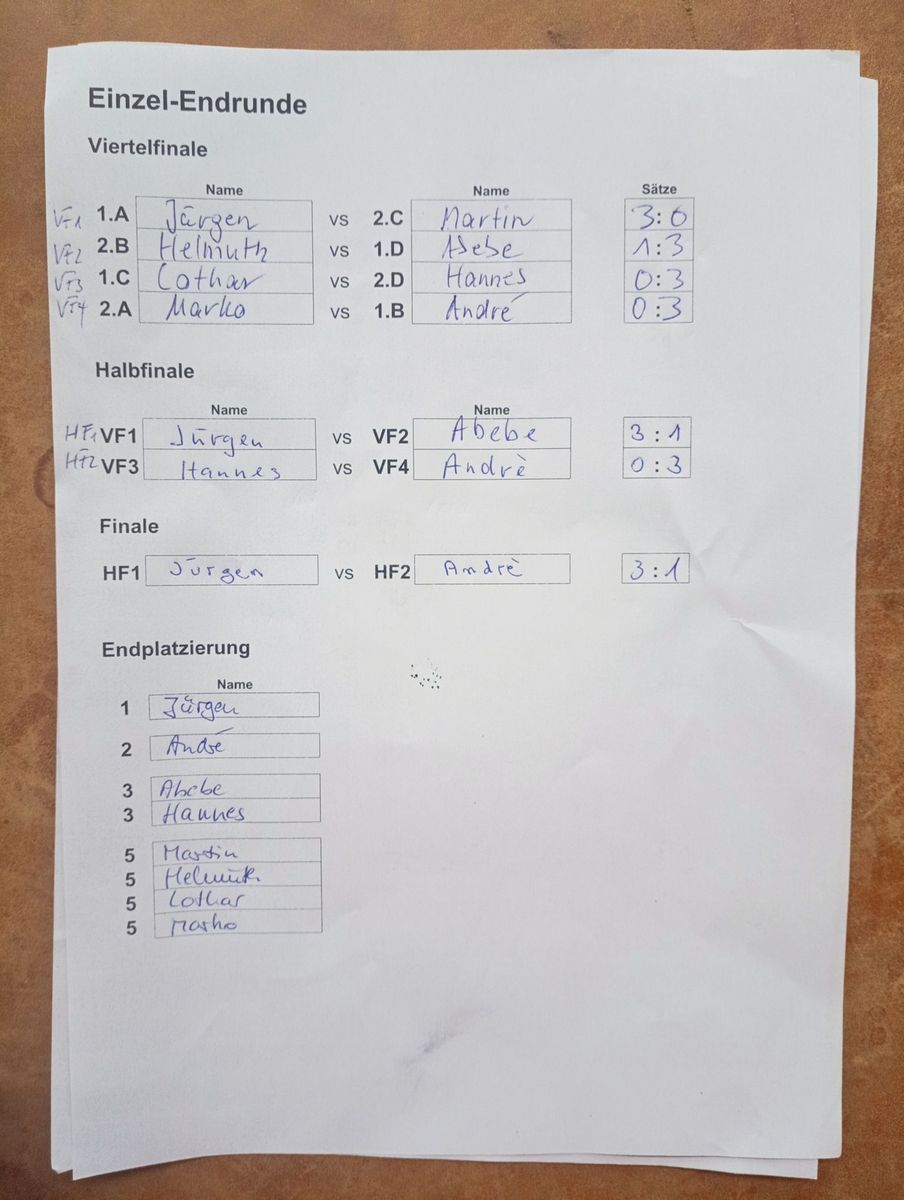 Einzel-Endrunde
Viertelfinale
Name Name Sätze
VF1 1.A Jürgen vs 2.C Martin 3:0
VF2 2.B Helmuth vs 1.D Abebe 1:3
VF3 1.C Lothar vs 2.D Hannes 0:3
VF4 2.A Marko vs 1.B André 0:3
Halbfinale
Name Name
HF1 VF1 Jürgen vs VF2 Abebe 3:1
HF2 VF3 Hannes vs VF4 Andrè 0:3
Finale
HF1 Jürgen vs HF2 Andrè 3:1
Endplatzierung
Name
1 Jürgen
2 André
3 Abebe
3 Hannes
5 Martin
5 Helmuth
5 Lothar
5 Marko